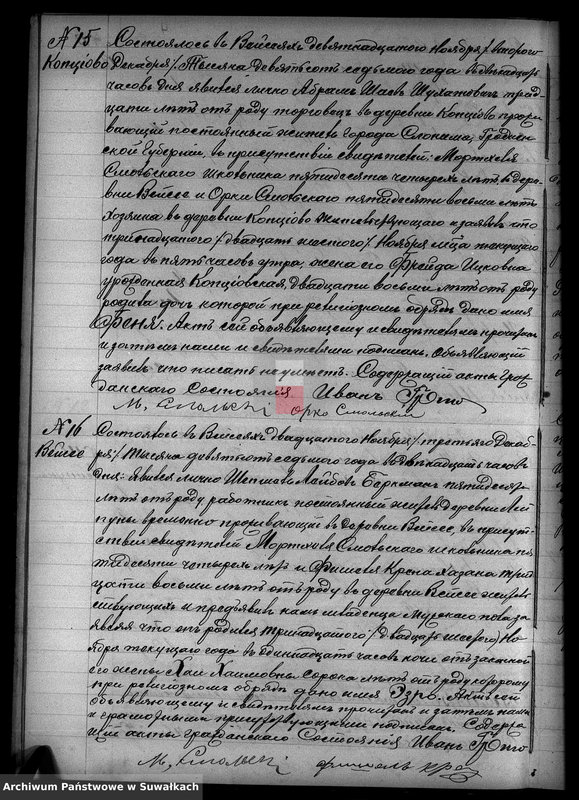 № 15
Копціово
Состоялось въ Вейсеяхъ девятнадцатого Ноября / второго
Декабря / Тысяча девятьсотъ седьмого года въ двѣнадцать
часовъ дня явился лично Абрамъ Шаевъ трид-
цати лѣтъ отъ роду торговецъ въ деревни Копціово прожи-
вающій постоянный житель города Слонима, Гроднен-
ской Губерніи, въ присутствіи свидѣтелей: Мортхеля
Смольскаго школьника пятидесяти четырехъ лѣтъ, въ дерев-
ни Вейсее и Орки Смольскаго пятидесяти восьми лѣтъ
хозяина въ деревни Копціово жительствующаго и заявилъ что
тринадцатого / двадцать шестого / Ноября мѣсяца текущаго
года въ пять часовъ утра, жена его Фрейда Ицковна
урожденная Копціовская двадцати восьми лѣтъ отъ роду
родила дочь которой при религіозномъ обрядѣ дано имя
Феня. Актъ сей объявляющему и свидѣтелямъ прочитанъ
и затѣмъ нами и свидѣтелями подписанъ. Объявляющій
заявилъ что писать не умѣетъ. Содержащій акты Граж-
данскаго Состоянія Иванъ
М. Смольскі Орко Смольскій
№ 16
Вейсее
Состоялось въ Вейсеяхъ двадцатого Ноября / третьяго Декаб-
ря / Тысяча девятьсотъ седьмого года въ двѣнадцать часовъ
дня: явился лично Лейбовъ Берманъ пятидесяти
лѣтъ отъ роду работникъ постоянный житель деревни Лей-
пуны временно проживающій въ деревни Вейсее, въ присут-
ствіи свидѣтелей Мортхеля Смольскаго школьника пя-
тидесяти четырехъ лѣтъ и Фишеля Крена хазана трид-
цати восьми лѣтъ отъ роду въ деревни Вейсее жительст-
ствующихъ и предъявилъ намъ младенца мужскаго пола за-
являя что онъ родился тринадцатого / двадцать шестого / Но-
ября текущаго года въ одиннадцать часовъ ночи отъ законной
его жены Хаи Хаимовны сорока лѣтъ отъ роду которому
при религіозномъ обрядѣ дано имя Эзръ. Актъ сей
объявляющему и свидѣтелямъ прочитанъ и затѣмъ нами
и грамотными присутствующими подписанъ. Содержа-
щій акты Гражданскаго Состоянія Иванъ
М. Смольскі Фишель
Archiwum Państwowe w Suwałkach